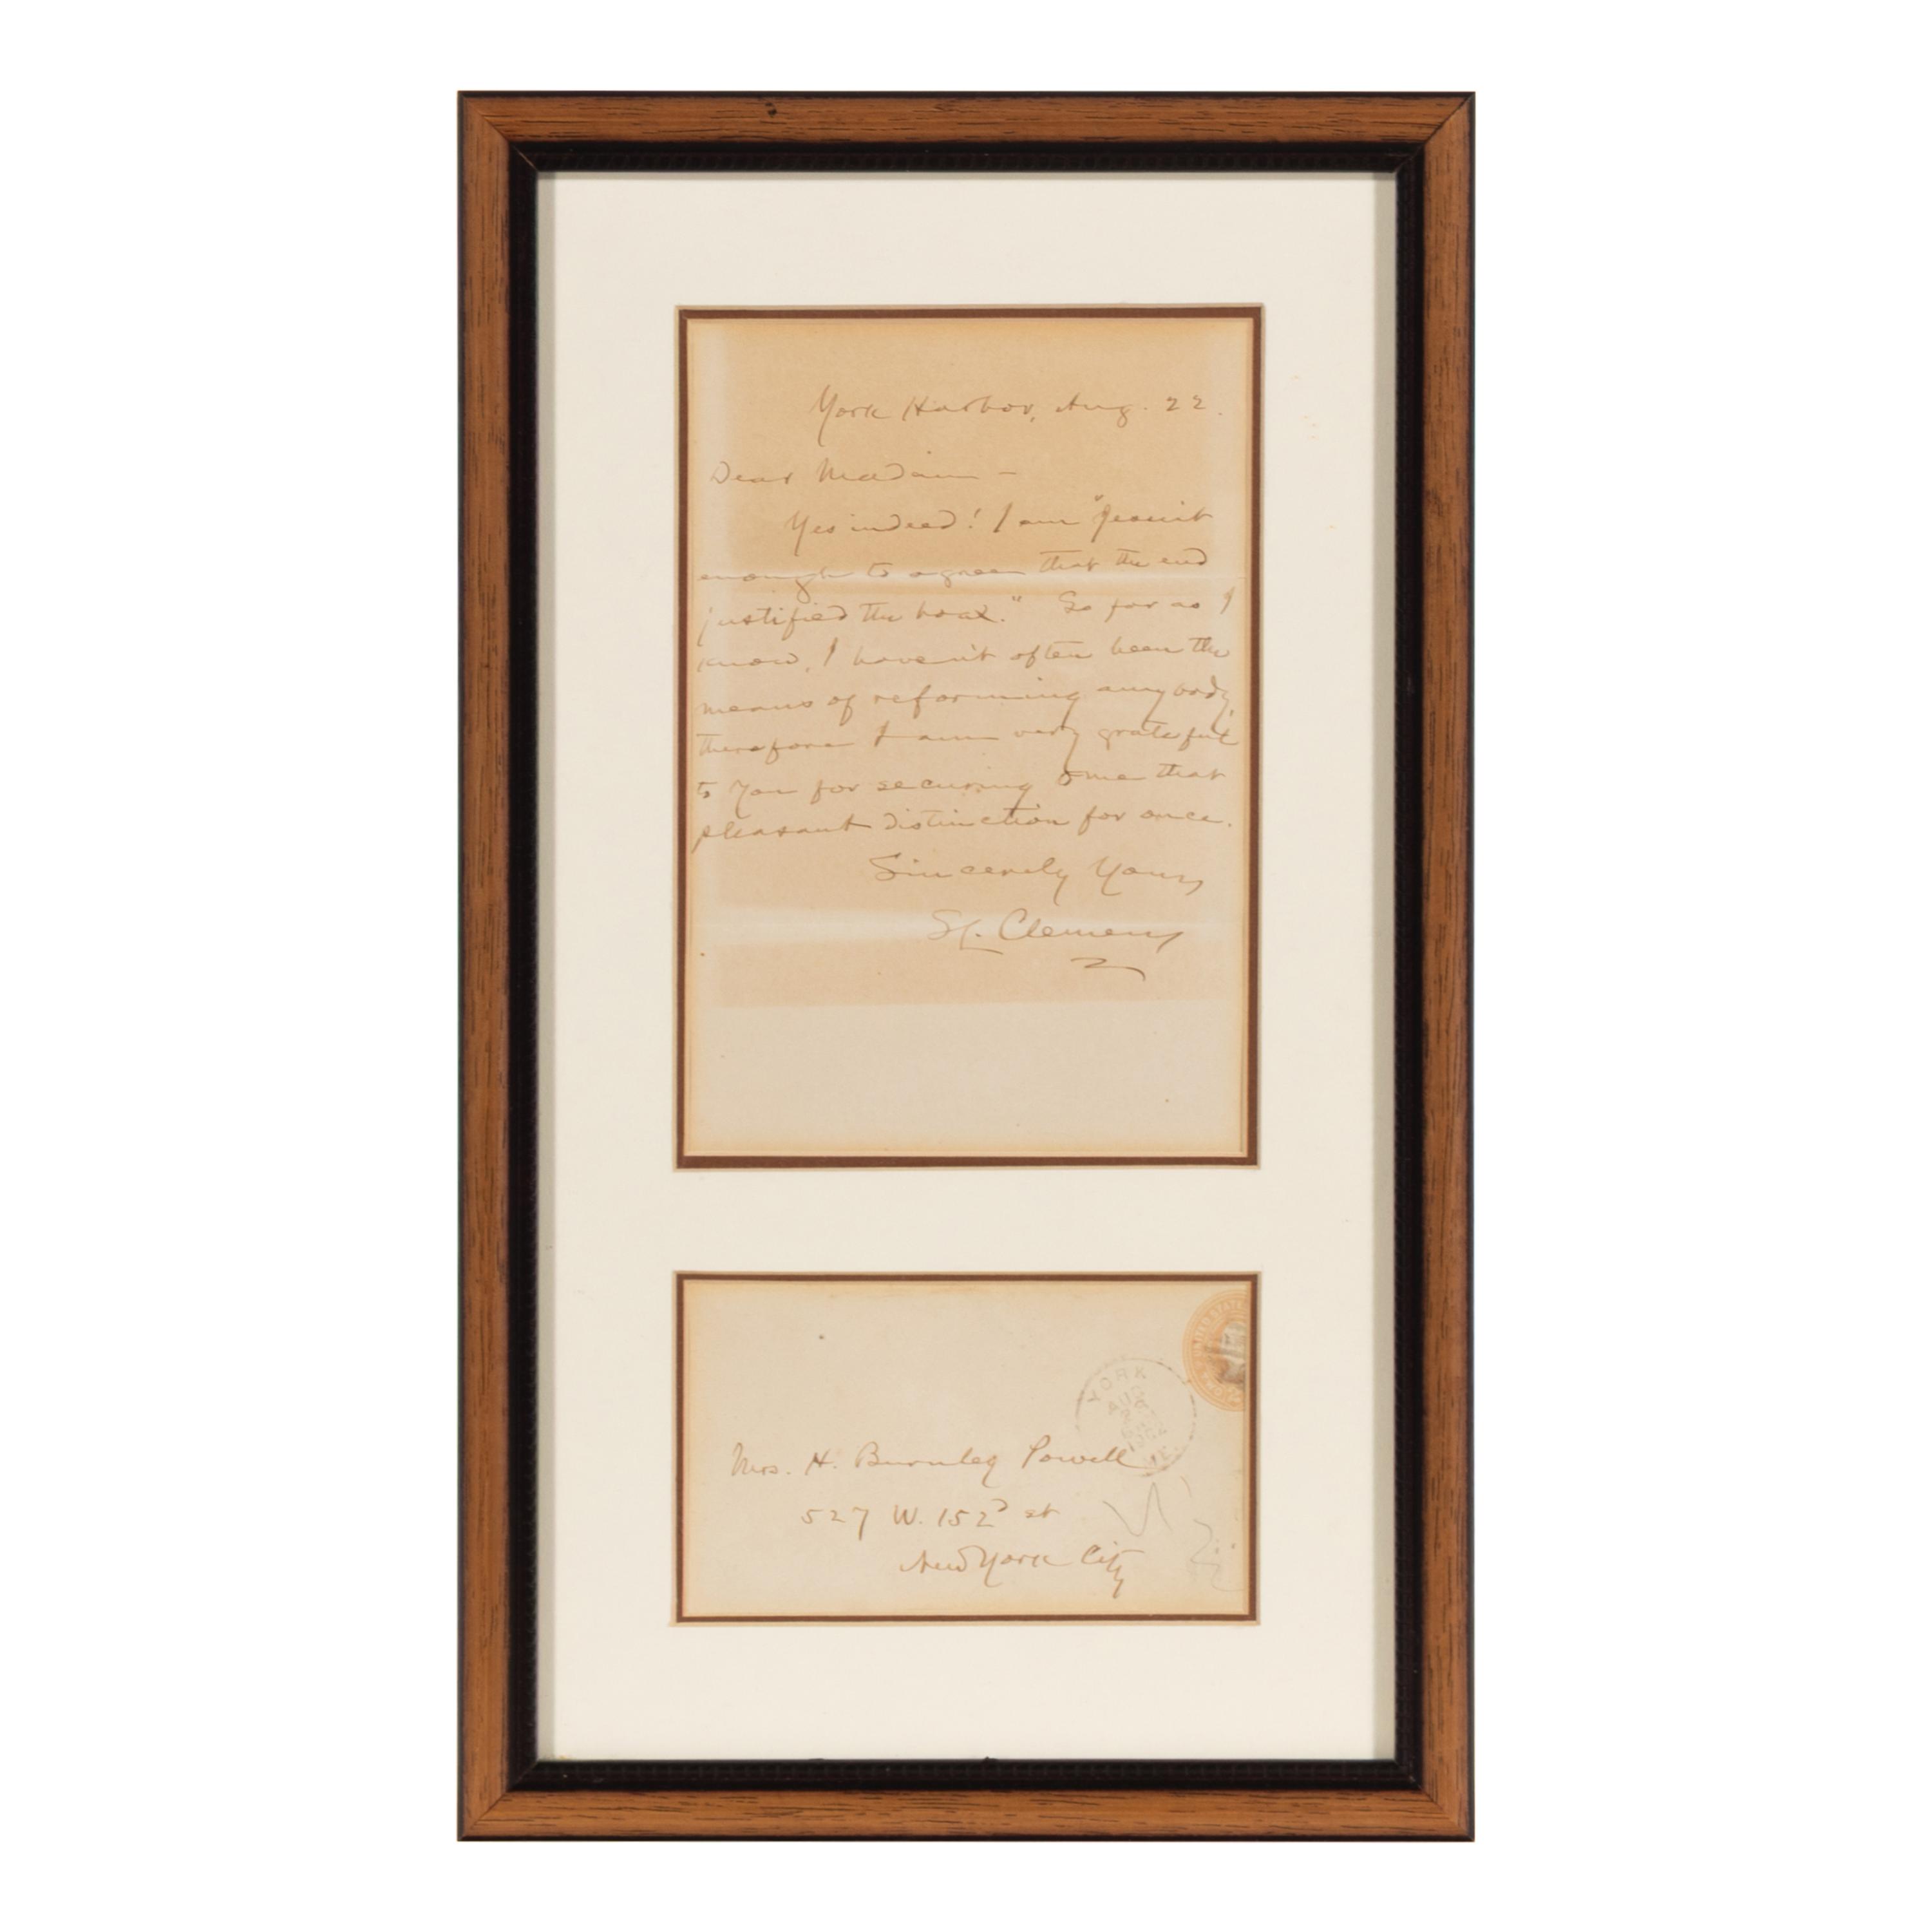 York Harbor, Aug. 22.
Dear Madam —
Yes indeed! I am "Jesuit
enough to agree that the end
justified the hoax." So far as I
know, I haven't often been the
means of reforming anybody,
therefore I am very grateful
to you for securing me that
pleasant distinction for once.
Sincerely Yours
SL. Clemens
UNITED STATES
YORK
AUG
1902
ME.
Mrs. H. Burnley Powell
527 W. 152d st
New York City